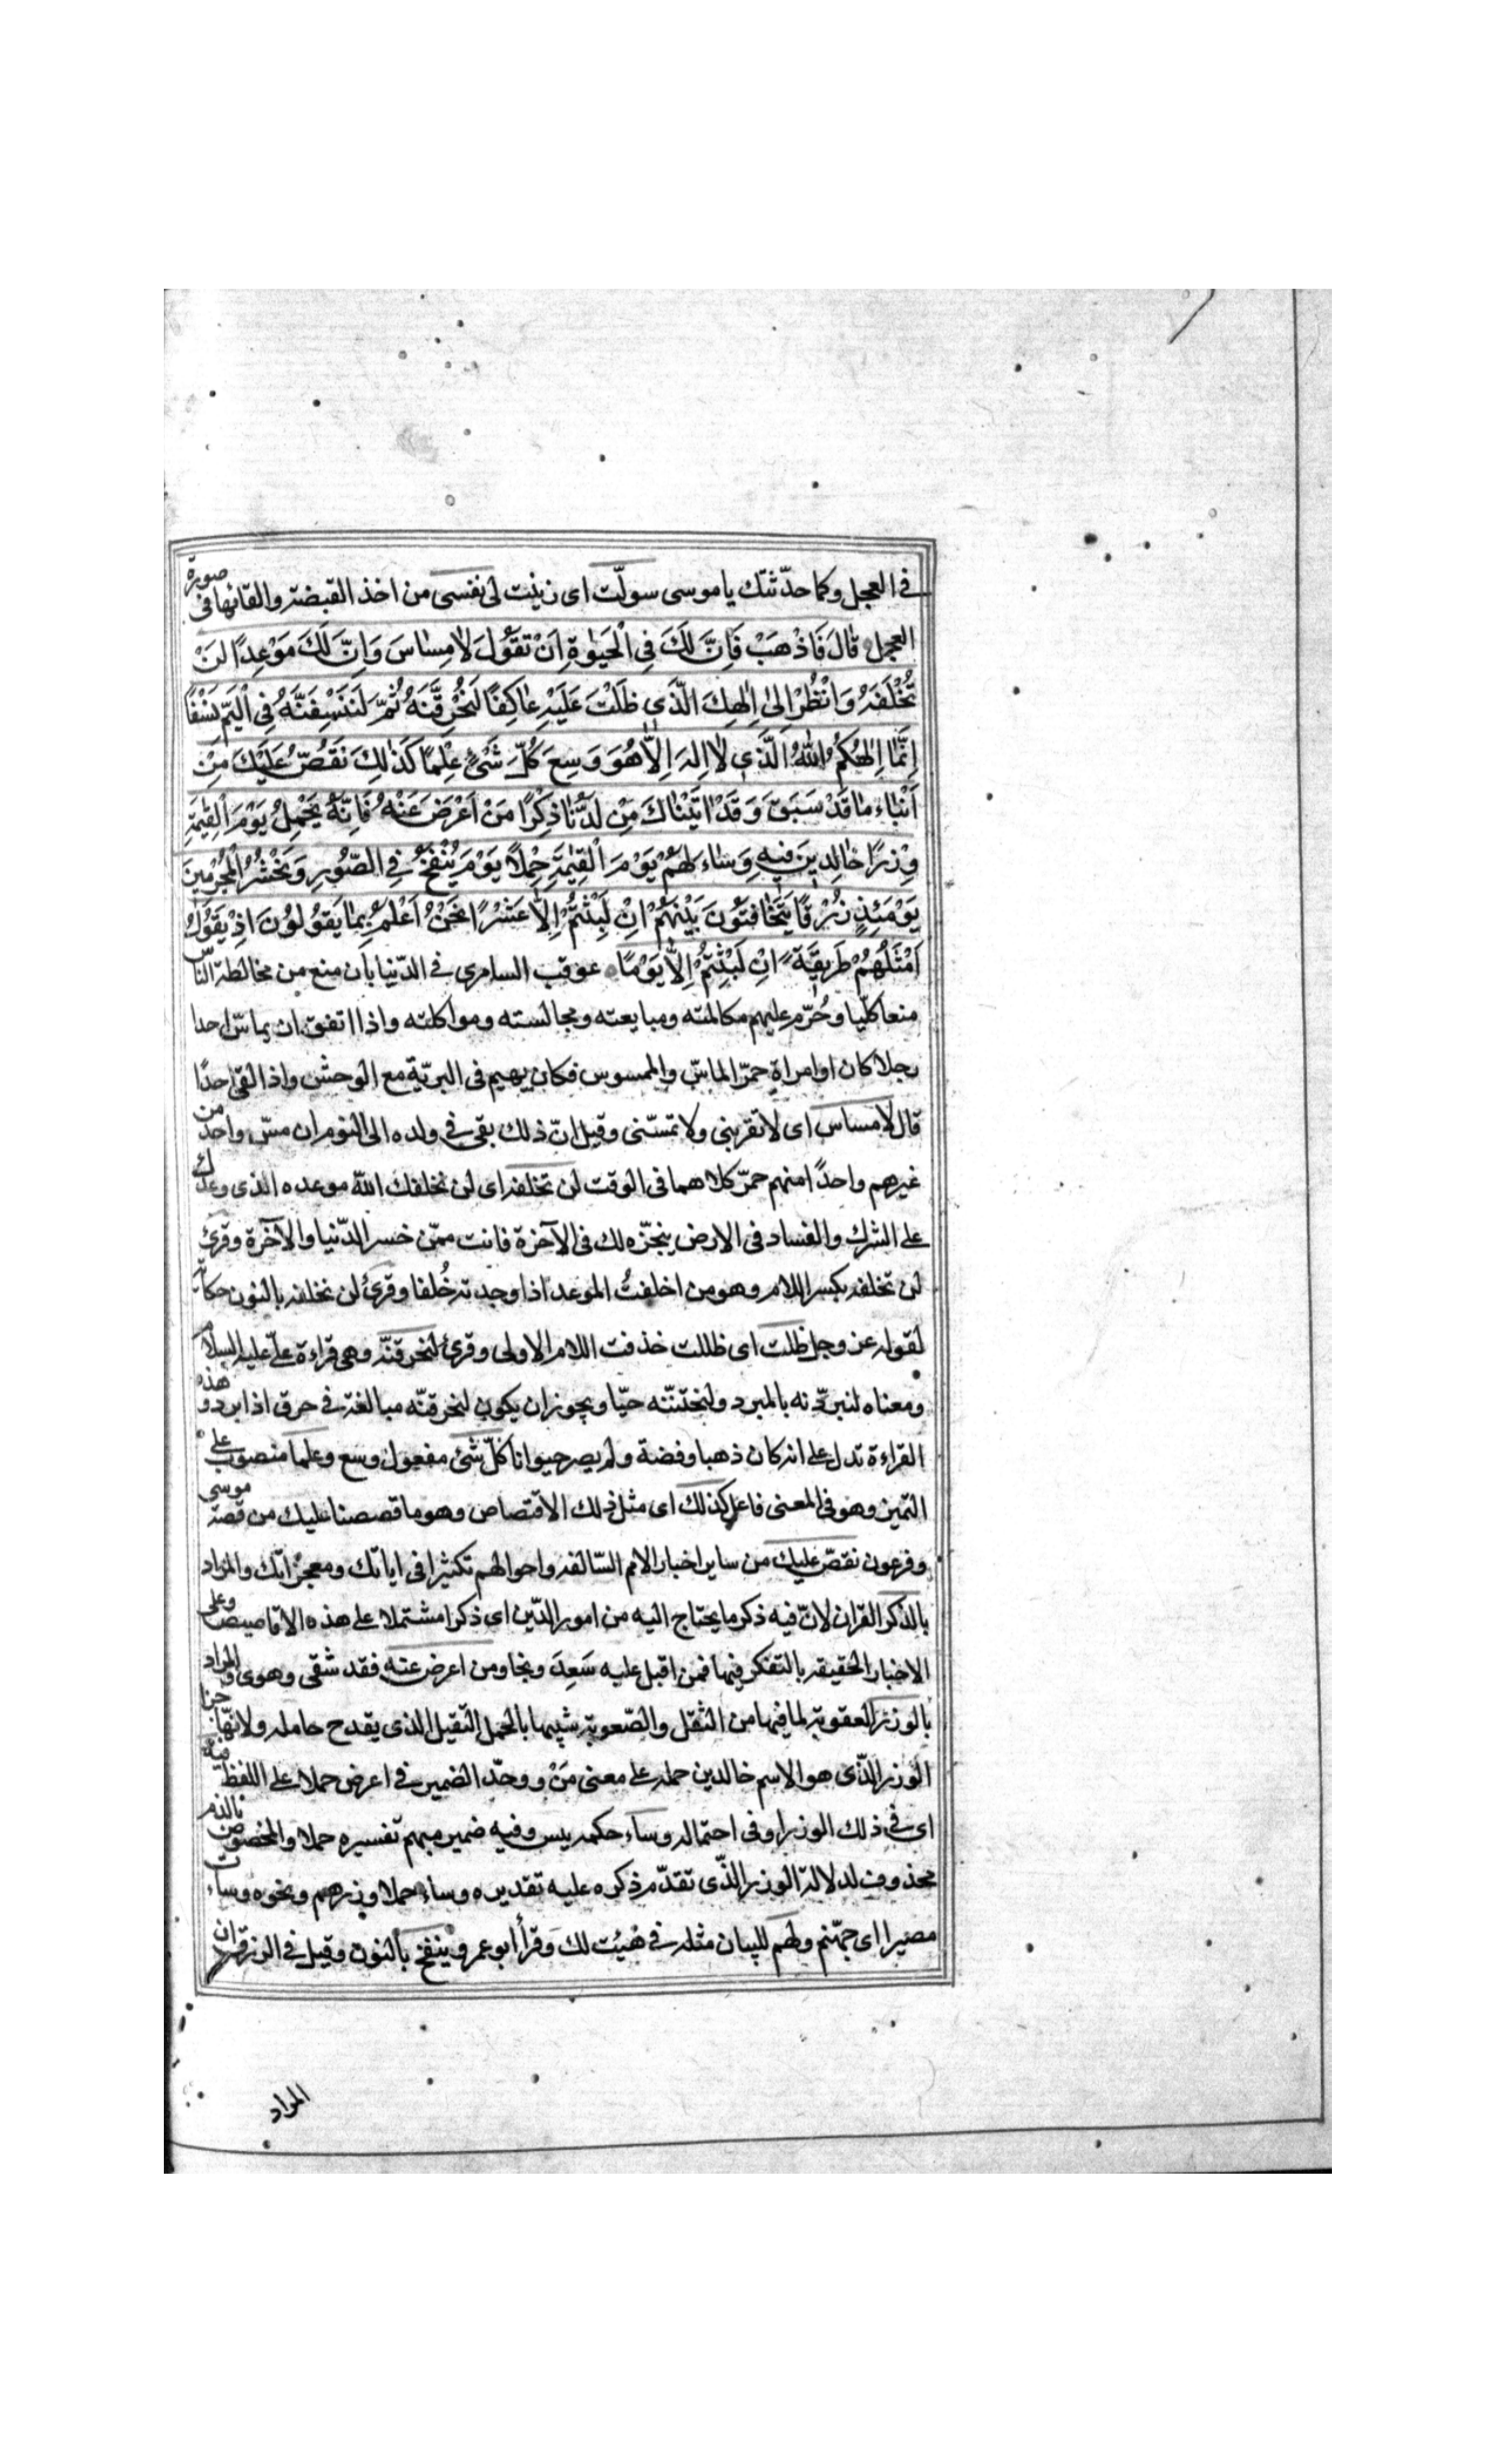 في العجل وكما حدّثتك يا موسى سولّت اى زينت لى نفسى من اخذ القبضة والقائها فى صورة
العجل قٰالَ فَاذْهَبْ فَاِنَّ لَكَ فِي الْحَيٰوةِ اَنْ تَقُولَ لٰا مِسٰاسَ وَاِنَّ لَكَ مَوْعِدًا لَنْ
تُخْلَفَهُ وَانْظُرْ اِلىٰ اِلٰهِكَ الَّذي ظَلْتَ عَلَيْهِ عٰاكِفًا لَنُحَرِّقَنَّهُ ثُمَّ لَنَنْسِفَنَّهُ فِي الْيَمِّ نَسْفًا
اِنَّمٰا اِلٰهُكُمُ اللّٰهُ الَّذي لٰا اِلٰهَ اِلّٰا هُوَ وَسِعَ كُلَّ شَيْءٍ عِلْمًا كَذٰلِكَ نَقُصُّ عَلَيْكَ مِنْ
اَنْبٰاءِ مٰا قَدْ سَبَقَ وَقَدْ اٰتَيْنٰاكَ مِنْ لَدُنّٰا ذِكْرًا مَنْ اَعْرَضَ عَنْهُ فَاِنَّهُ يَحْمِلُ يَوْمَ الْقِيٰمَةِ
وِزْرًا خٰالِدينَ فيهِ وَسٰاءَ لَهُمْ يَوْمَ الْقِيٰمَةِ حِمْلًا يَوْمَ يُنْفَخُ فِي الصُّورِ وَنَحْشُرُ الْمُجْرِمينَ
يَوْمَئِذٍ زُرْقًا يَتَخٰافَتُونَ بَيْنَهُمْ اِنْ لَبِثْتُمْ اِلّٰا عَشْرًا نَحْنُ اَعْلَمُ بِمٰا يَقُولُونَ اِذْ يَقُولُ
اَمْثَلُهُمْ طَريقَةً اِنْ لَبِثْتُمْ اِلّٰا يَوْمًا عوقب السامرى في الدّنيا بأن منع من مخالطة النّاس
منعا كلّيا وحُرّم عليهم مكالمته ومبايعته ومجالسته ومواكلته واذا اتفق ان يماسّ احدا
رجلا كان او امراة حمّ الماسّ والممسوس فكان يهيم فى البريّة مع الوحش واذا لقى احدًا
قال لا مساس اى لا تقربنى ولا تمسّنى وقيل انّ ذلك بقى في ولده الى اليوم ان مسّ واحد من
غيرهم واحدًا منهم حمّ كلاهما فى الوقت لن تخلفه اى لن يخلفك اللّه موعده الذى وعدك
على الشرك والفساد فى الارض ينجّزه لك فى الآخرة فانت ممّن خسر الدّنيا والآخرة وقرئ
لن تخلفه بكسر اللام وهو من اخلفتُ الموعد اذا وجدته خُلفا وقرئ لن نخلفه بالنون حكاية
لقوله عز وجل ظلت اى ظللت حذفت اللام الاولى وقرئ لنحرقنّه وهى قراءة علىّ عليه السلام
ومعناه لنبردّنه بالمبرد ولنحتنّنه حتّا ويجوز ان يكون لنحرقنّه مبالغة في حرق اذا برد وهذه
القراءة تدل على انه كان ذهبا وفضة ولم يصر حيوانا كلّ شئ مفعول وسع وعلما منصوب على
التمييز وهو فى المعنى فاعل كذلك اى مثل ذلك الاقتصاص وهو ما قصصنا عليك من قصّة موسى
وفرعون نقصّ عليك من ساير اخبار الامم السّالفه واحوالهم تكثيرا فى اياتك ومعجزاتك والمراد
بالذكر القران لانّ فيه ذكر ما يحتاج اليه من امور الدّين اى ذكرا مشتملا على هذه الاقاصيص وعلى
الاخبار الحقيقه بالتفكر فيها فمن اقبل عليه سَعِدَ ونجا ومن اعرض عنه فقد شقى وهوى والمراد
بالوزر العقوبة لما فيها من الثقل والصّعوبة شبيها بالحمل الثقيل الذى يفدح حامله ولانّها جزا
الوزر الذّى هو الاسم خالدين حمله على معنى مَنْ ووحّد الضمير في اعرض حملا على اللفظ فيه
اى في ذلك الوزر او فى احتماله وساء حكمه بيس وفيه ضمير مبهم تفسيره حملا والمخصوص بالذم
محذوف لدلالة الوزر الذّى تقدّم ذكره عليه تقديره وساء حملا وزرهم ونحوه وساءت
مصيرا اى جهّنم ولهم للبيان مثله في هَيْت لك وقرأ ابو عمرو ننفخ بالنون وقيل في الزرق ان
المراد